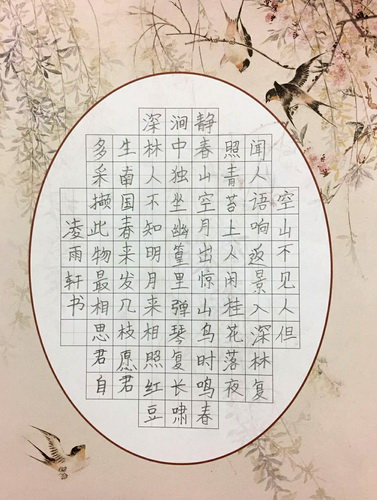 空山不见人但
闻人语响返景入深林复
照青苔上人闲桂花落夜
静春山空月出惊山鸟时鸣春
涧中独坐幽篁里弹琴复长啸
深林人不知明月来相照红豆
生南国春来发几枝愿君
多采撷此物最相思君自
凌雨轩书